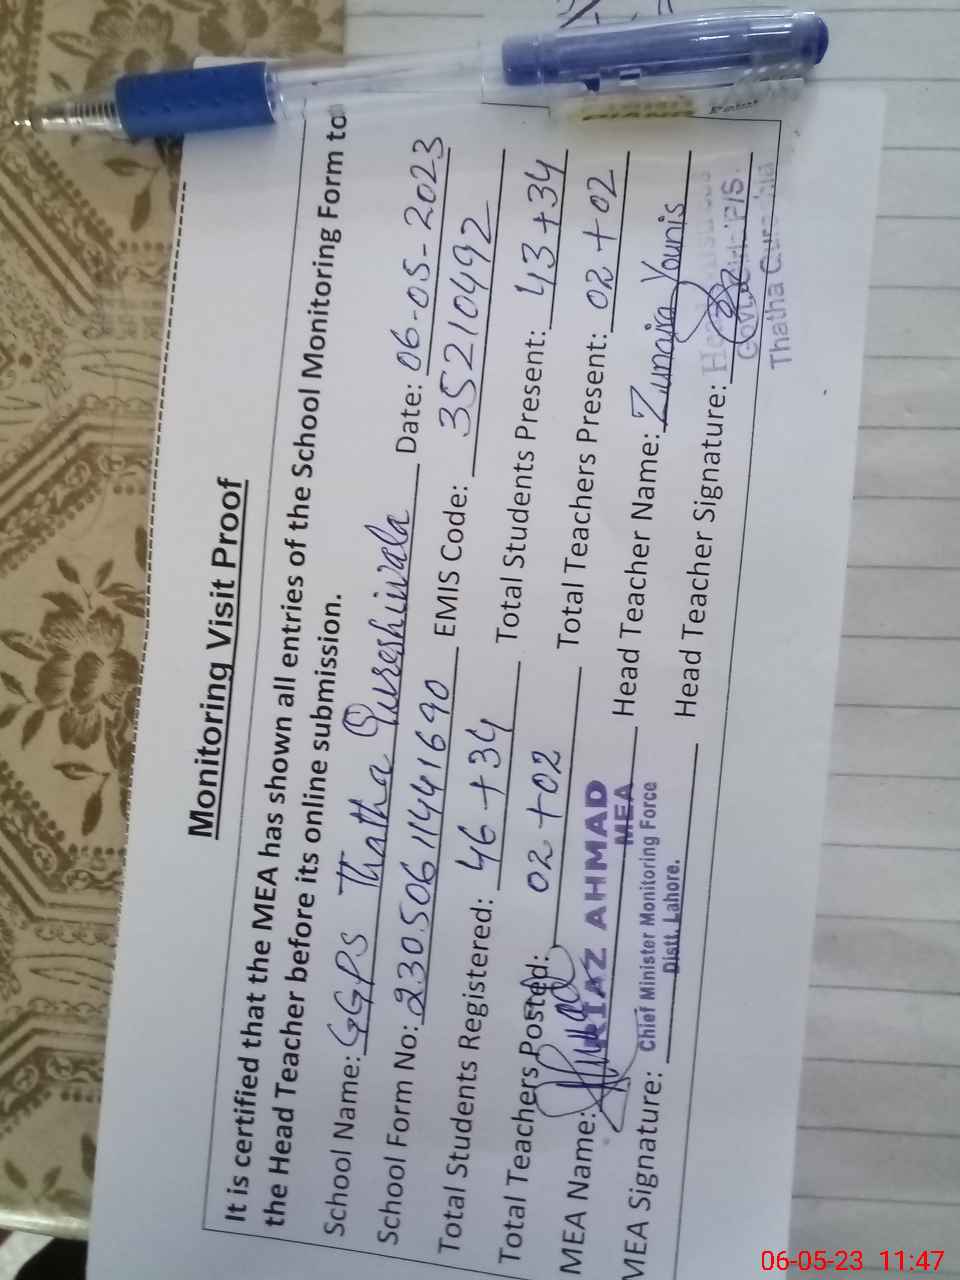 Monitoring Visit Proof
It is certified that the MEA has shown all entries of the School Monitoring Form to
the Head Teacher before its online submission.
School Name: GGPS Thatha Qureshiwala Date: 06-05-2023
School Form No: 23050611441690 EMIS Code: 35210492
Total Students Registered: 46 + 34 Total Students Present: 43 + 34
Total Teachers Posted: 02 + 02 Total Teachers Present: 02 + 02
MEA Name: RIAZ AHMAD Head Teacher Name: Zunaira Younis
MEA
Chief Minister Monitoring Force
Distt. Lahore.
MEA Signature: Head Teacher Signature:
Govt. P/S.
Thatha
PIANO
Point
06-05-23 11:47